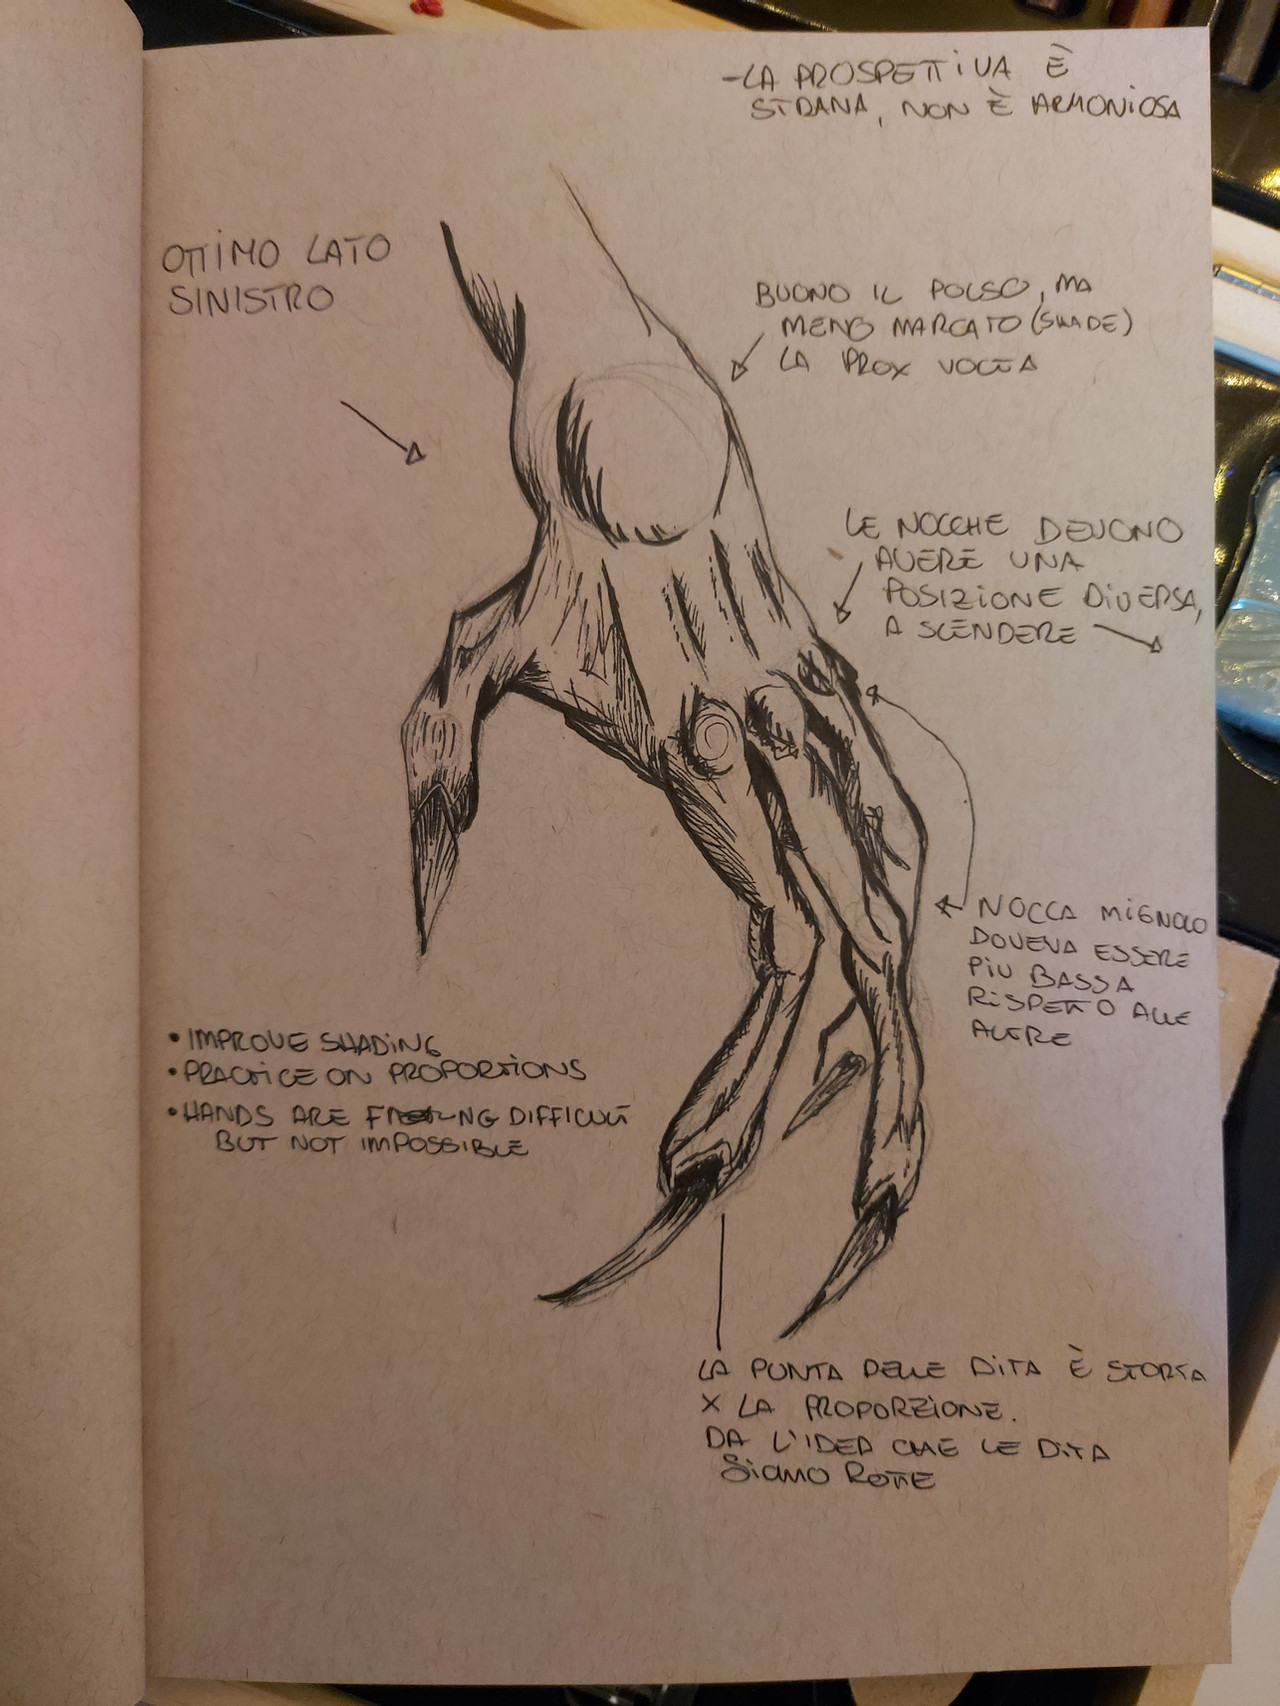 -LA PROSPETTIVA È
STRANA, NON È ARMONIOSA
OTTIMO LATO
SINISTRO
BUONO IL POLSO, MA
MENO MARCATO (SHADE)
LA PROX VOLTA
LE NOCCHE DEVONO
AVERE UNA
POSIZIONE DIVERSA,
A SCENDERE
NOCCA MIGNOLO
DOVEVA ESSERE
PIU BASSA
RISPETTO ALLE
ALTRE
• IMPROVE SHADING
• PRACTICE ON PROPORTIONS
• HANDS ARE DIFFICULT
BUT NOT IMPOSSIBLE
LA PUNTA DELLE DITA È STORTA
X LA PROPORZIONE.
DA L'IDEA CHE LE DITA
SiANO ROTTE